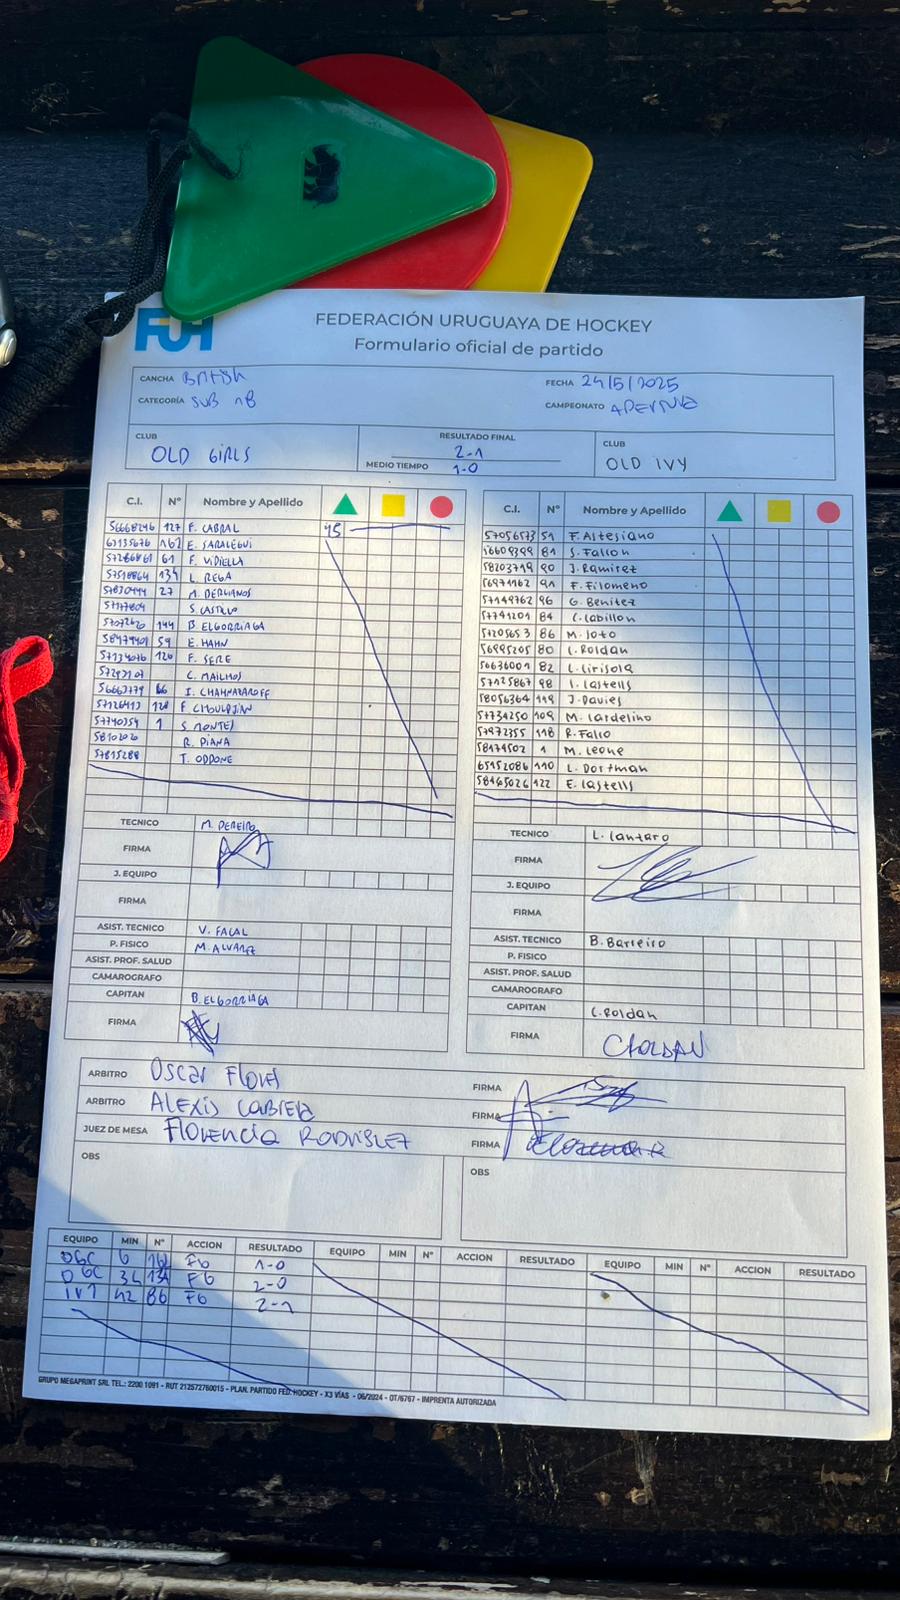 FUH
FEDERACIÓN URUGUAYA DE HOCKEY
Formulario oficial de partido
CANCHA British
FECHA 24/5/2025
CATEGORÍA SUB 18
CAMPEONATO APERTURA
CLUB OLD GIRLS
RESULTADO FINAL 2-1
MEDIO TIEMPO 1-0
CLUB OLD IVY
C.I. Nº Nombre y Apellido
127 F. CABRAL 45
162 E. SARALEGUI
61 F. VIDIELLA
134 L. REGA
27 M. DERGIANOS
S. CASTRO
144 B. ELGORRIAGA
59 E. HAHN
120 F. SERE
C. MAILHOS
66 I. CHAHNAZAROFF
128 F. CHOULDJIAN
57740354 1 S. MONTES
R. DIANA
57815288 T. ODDONE
TECNICO M. PEREIRO
FIRMA
J. EQUIPO
FIRMA
ASIST. TECNICO V. FACAL
P. FISICO M. ALVAREZ
ASIST. PROF. SALUD
CAMAROGRAFO
CAPITAN B. ELGORRIAGA
FIRMA
C.I. Nº Nombre y Apellido
57056573 51 F. Altesiano
56609399 81 S. Fallon
58203719 90 J. Ramirez
56974162 91 F. Filomeno
57149762 96 G. Benitez
57741201 84 C. Cabillon
86 M. Soto
56995205 80 C. Roldan
56636001 82 L. Cirisola
57125867 98 I. Castells
58056364 119 J. Davies
57734250 109 M. Cardelino
57972355 118 R. Fallo
58174502 1 M. Leone
65152086 110 L. Dortman
58465026 122 E. Castells
TECNICO L. Cantaro
FIRMA
J. EQUIPO
FIRMA
ASIST. TECNICO B. Barreiro
P. FISICO
ASIST. PROF. SALUD
CAMAROGRAFO
CAPITAN C. Roldan
FIRMA CROLDAN
ARBITRO Oscar Flores
FIRMA
ARBITRO ALEXIS CABRERA
FIRMA
JUEZ DE MESA Florencia RODRIGUEZ
FIRMA
OBS
OBS
EQUIPO MIN Nº ACCION RESULTADO EQUIPO MIN Nº ACCION RESULTADO EQUIPO MIN Nº ACCION RESULTADO
OGC 6 162 FG 1-0
OGC 34 134 FG 2-0
IVY 42 86 FG 2-1
GRUPO MEGAPRINT SRL TEL.: 2200 1091 - RUT 212572760015 - PLAN. PARTIDO FED. HOCKEY - X3 VÍAS - 06/2024 - OT/6767 - IMPRENTA AUTORIZADA